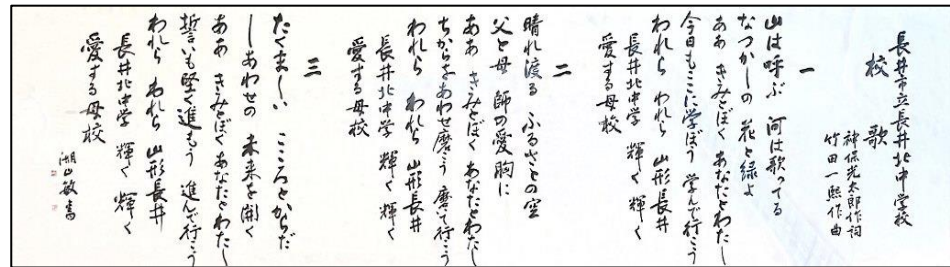 長井市立長井北中学校
校歌
神保光太郎作詞
竹田一熙作曲
一
山は呼ぶ 河は歌ってる
なつかしの 花と緑よ
ああ きみとぼく あなたとわたし
今日もここに学ぼう 学んで行こう
われら われら 山形長井
長井北中学 輝く 輝く
愛する母校
二
晴れ渡る ふるさとの空
父と母 師の愛胸に
ああ きみとぼく あなたとわたし
ちからをあわせ磨こう 磨いて行こう
われら われら 山形長井
長井北中学 輝く 輝く
愛する母校
三
たくましい こころとからだ
しあわせの 未来を開く
ああ きみとぼく あなたとわたし
誓いも堅く進もう 進んで行こう
われら われら 山形長井
長井北中学 輝く 輝く
愛する母校
敏書